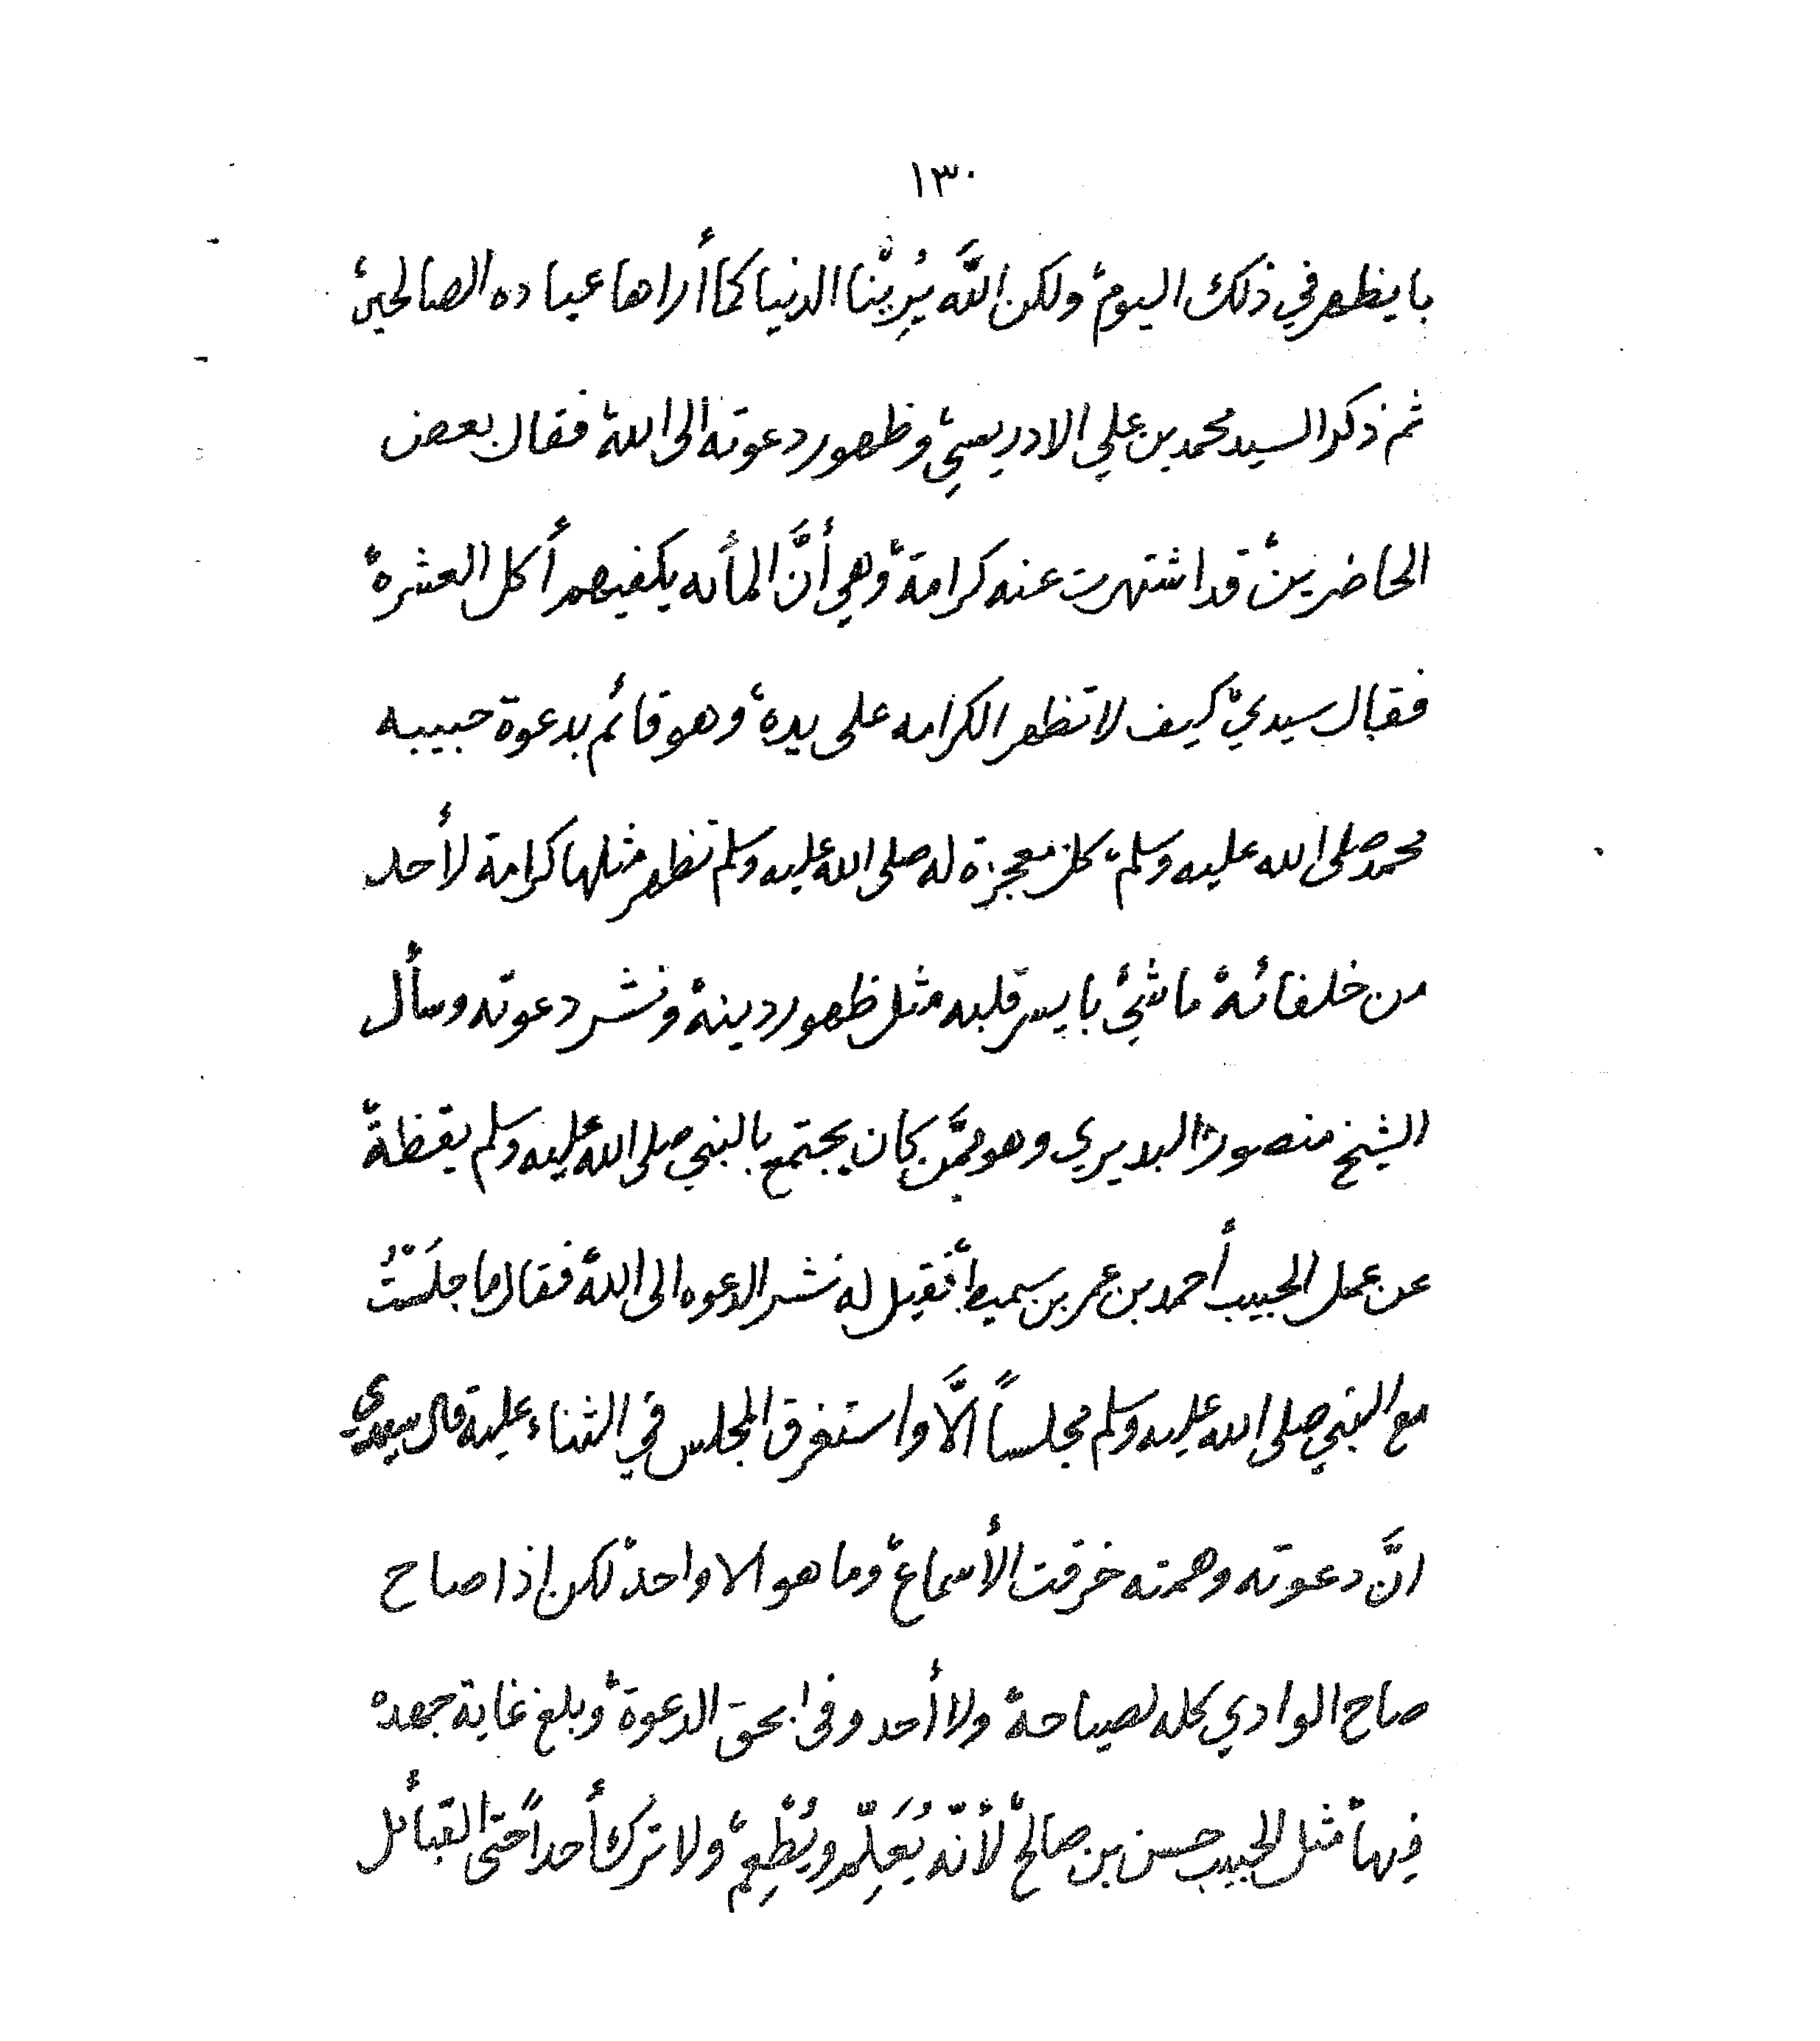 ١٣٠
بايظهر في ذلك اليوم، ولكن اللَّه يُرِيْنا الدنيا كما أراها عباده الصالحين،
ثم ذكر السيد محمد بن علي الادريسيِ، وظهور دعوته الى الله، فقال بعض
الحاضرين، قد اشتهرت عنه كرامة، وهي أنَّ المأته يكفيهم أكل العشره،
فقال سيدي، كيف لا تظهر الكرامه على يده، وهو قائم بدعوة حبيبه
محمد صلى الله عليه وسلم، كل معجزة له صلى الله عليه وسلم تظهر مثلها كرامة لأحد
من خلفائه، ما شيْ بايسر قلبه مثل ظهور دينه، ونشر دعوته وسأل
الشيخ منصور البديري وهو ممَّن كان يجتمع بالنبي صلى الله عليه وسلم يقظةً
عن عمل الحبيب أحمد بن عمر بن سميط، فقيل له نشر الدعوه الى الله، فقال ما جلَسْتُ
مع النبي صلى الله عليه وسلم مجلساً الاَّ واستغرق المجلس في الثناء عليه، قال سيدي
انَّ دعوته وهمته خرقت الأسماع، وما هو الا واحد، لكن اذا صاح
صاح الوادي كله لصياحه، ولا أحد وفى بحق الدعوة، وبلغ غاية جهده
فِيها، مثل الحبيب حسن بن صالح، لأنّه يُعَلِّم ويُطْعِم، ولا ترك أحداً، حتى القبائل